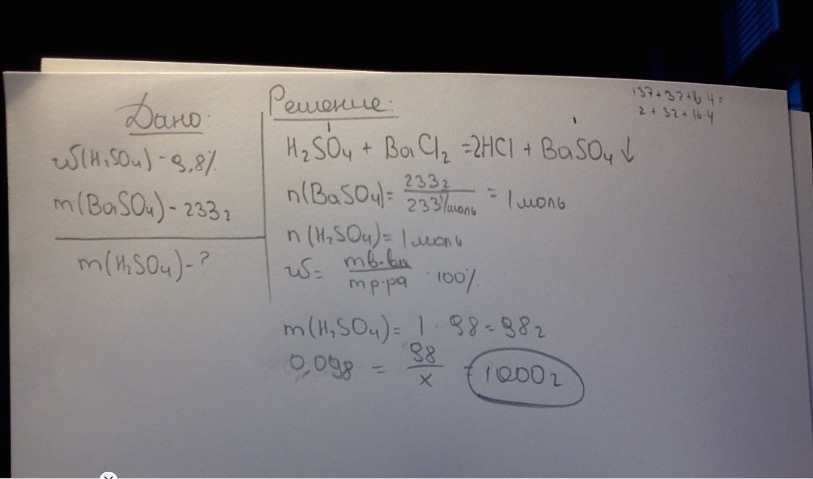 Дано:
ω(H₂SO₄) - 9,8%
m(BaSO₄) - 233г
m(H₂SO₄) - ?
Решение:
H₂SO₄ + BaCl₂ = 2HCl + BaSO₄↓
n(BaSO₄) = 233г / 233г/моль = 1 моль
n(H₂SO₄) = 1 моль
ω = mв-ва / mр-ра · 100%
m(H₂SO₄) = 1 · 98 = 98г
0,098 = 98 / x = 1000г
137+32+64=
2+32+164